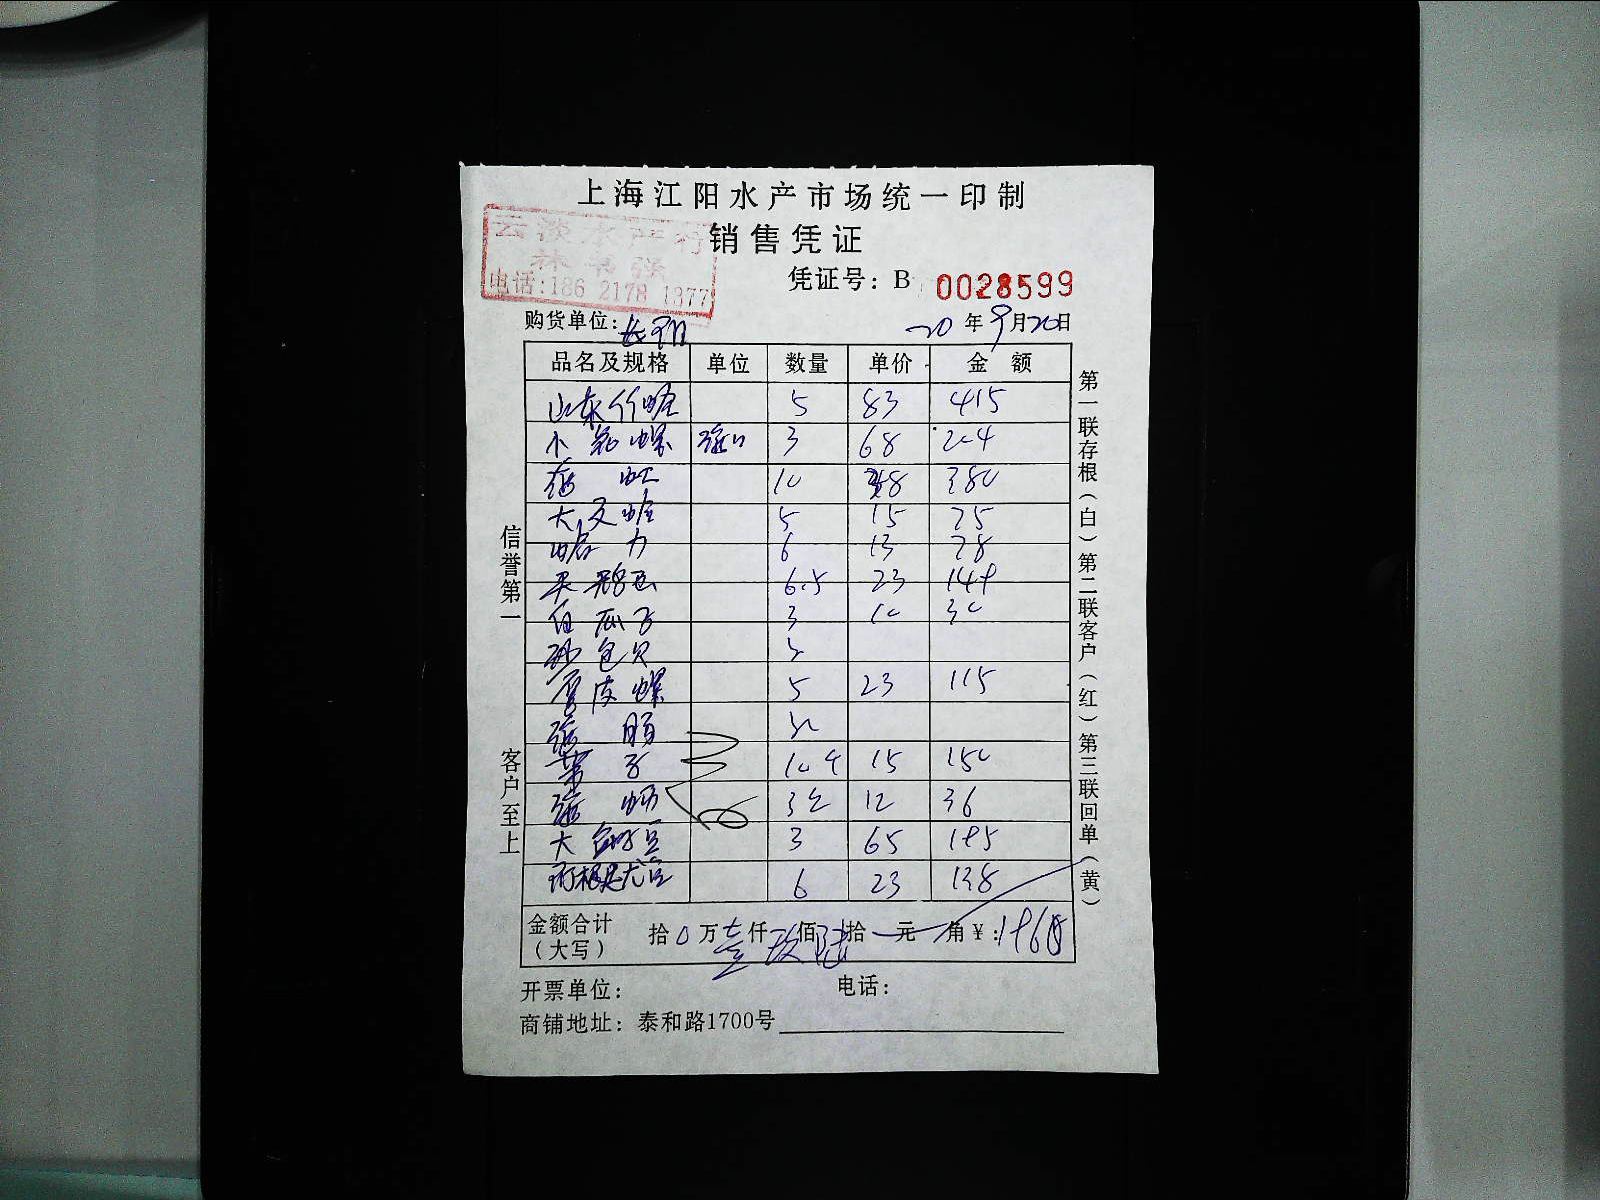 上海江阳水产市场统一印制
云波水产行
销售凭证
林 强
电话:186 2178 1377
凭证号：B 0028599
购货单位:
20年9月20日
品名及规格 单位 数量 单价 金 额
山东竹蛏 5 83 415
小 螺 3 68 204
虾 10 38 380
大 文蛤 5 15 75
蛤 力 6 13 78
6.5 23 149
白 瓜子 3 10 30
沙包贝 2
厚皮螺 5 23 115
肠
10 15 150
3 12 36
大 3 65 195
阿根廷 6 23 138
金额合计（大写） 拾0万壹仟玖佰陆拾 元 角￥:1960
开票单位: 电话:
商铺地址: 泰和路1700号
信誉第一
客户至上
第一联存根（白）第二联客户（红）第三联回单（黄）